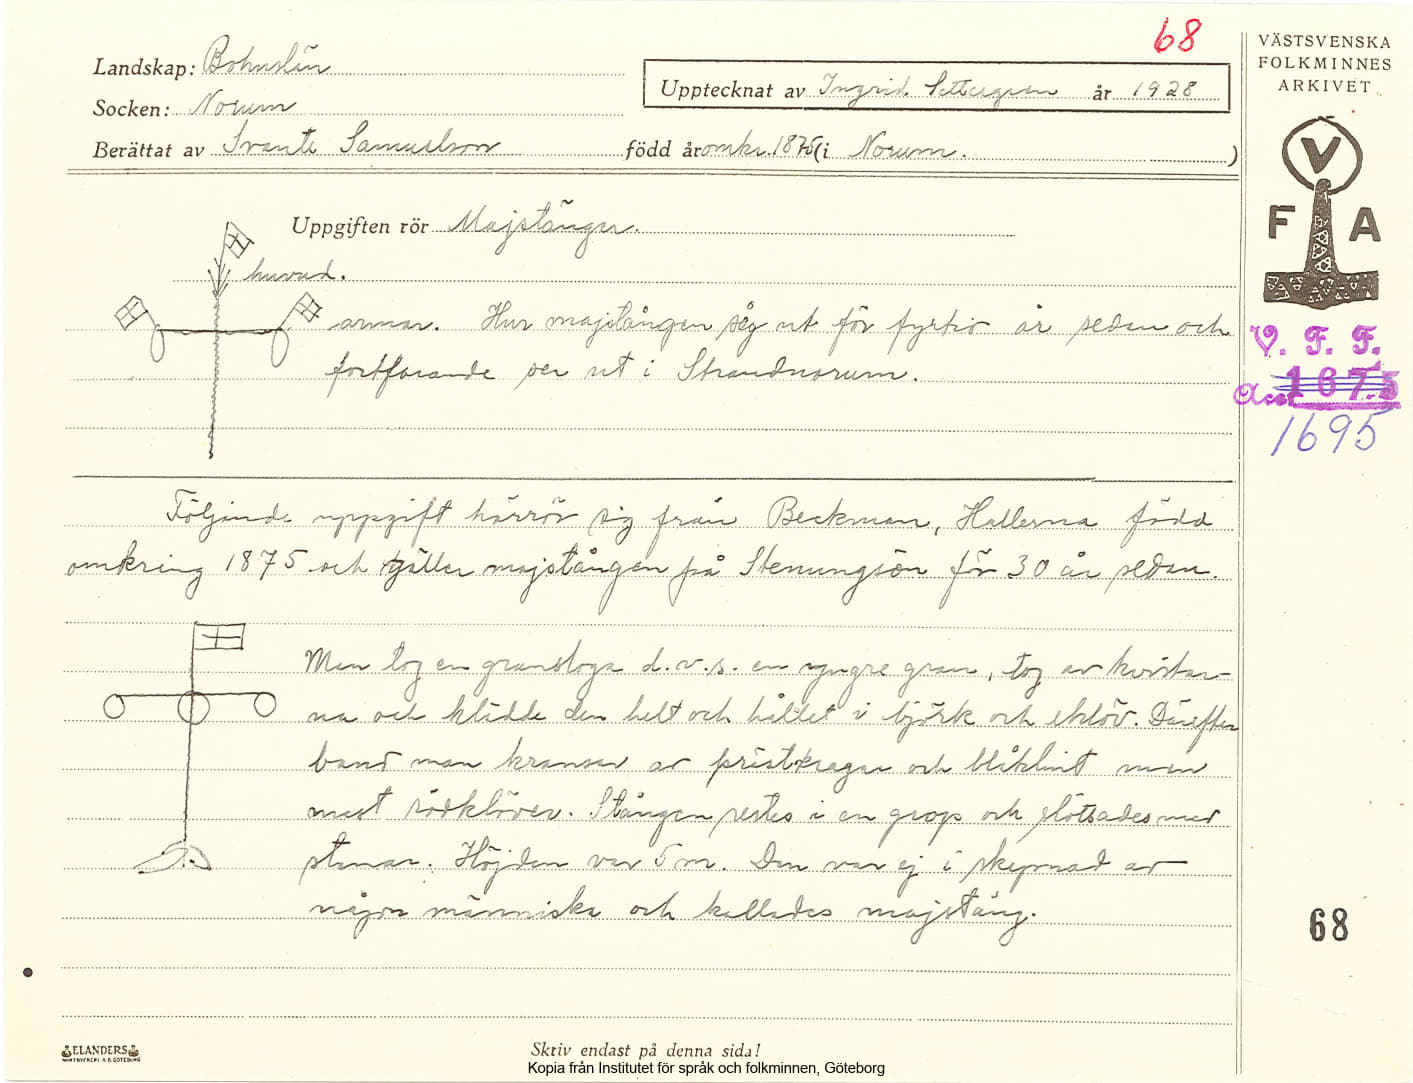 68
VÄSTSVENSKA
FOLKMINNES
ARKIVET
Landskap: Bohuslän
Upptecknat av Ingrid Settergren år 1928
Socken: Norum
Berättat av Svante Samuelson född år omkr. 1875 (i Norum. )
V
F A
Uppgiften rör Majstänger.
huvud.
armar. Hur majstången såg ut för fyrtio år sedan och
fortfarande ser ut i Strandnorum.
V. F. F.
Acc 1675
1695
Följande uppgift härrör sig från Beckman, Hallerna född
omkring 1875 och gäller majstången på Stenungsön för 30 år sedan.
Man tog en granstoga d.v.s. en yngre gran, tog av kvistar-
na och klädde den helt och hållet i björk och eklöv. Därefter
band man kransar av prästkragar och blåklint men
mest rödklöver. Stången restes i en grop och stöttades med
stenar. Höjden var 5 m. Den var ej i skepnad av
någon människa och kallades majstång.
68
ELANDERS
BOKTRYCKERI A.B. GÖTEBORG
Skriv endast på denna sida!
Kopia från Institutet för språk och folkminnen, Göteborg